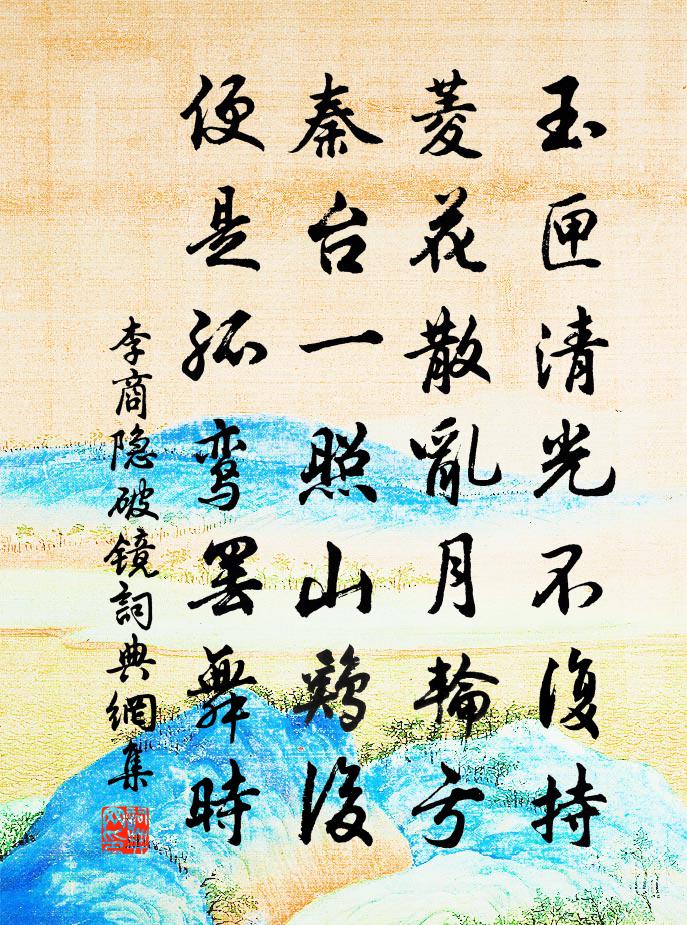 玉匣清光不復持
菱花散亂月輪亏
秦台一照山鷄後
便是孤鸾罢舞時
李商隐破鏡詞典網集